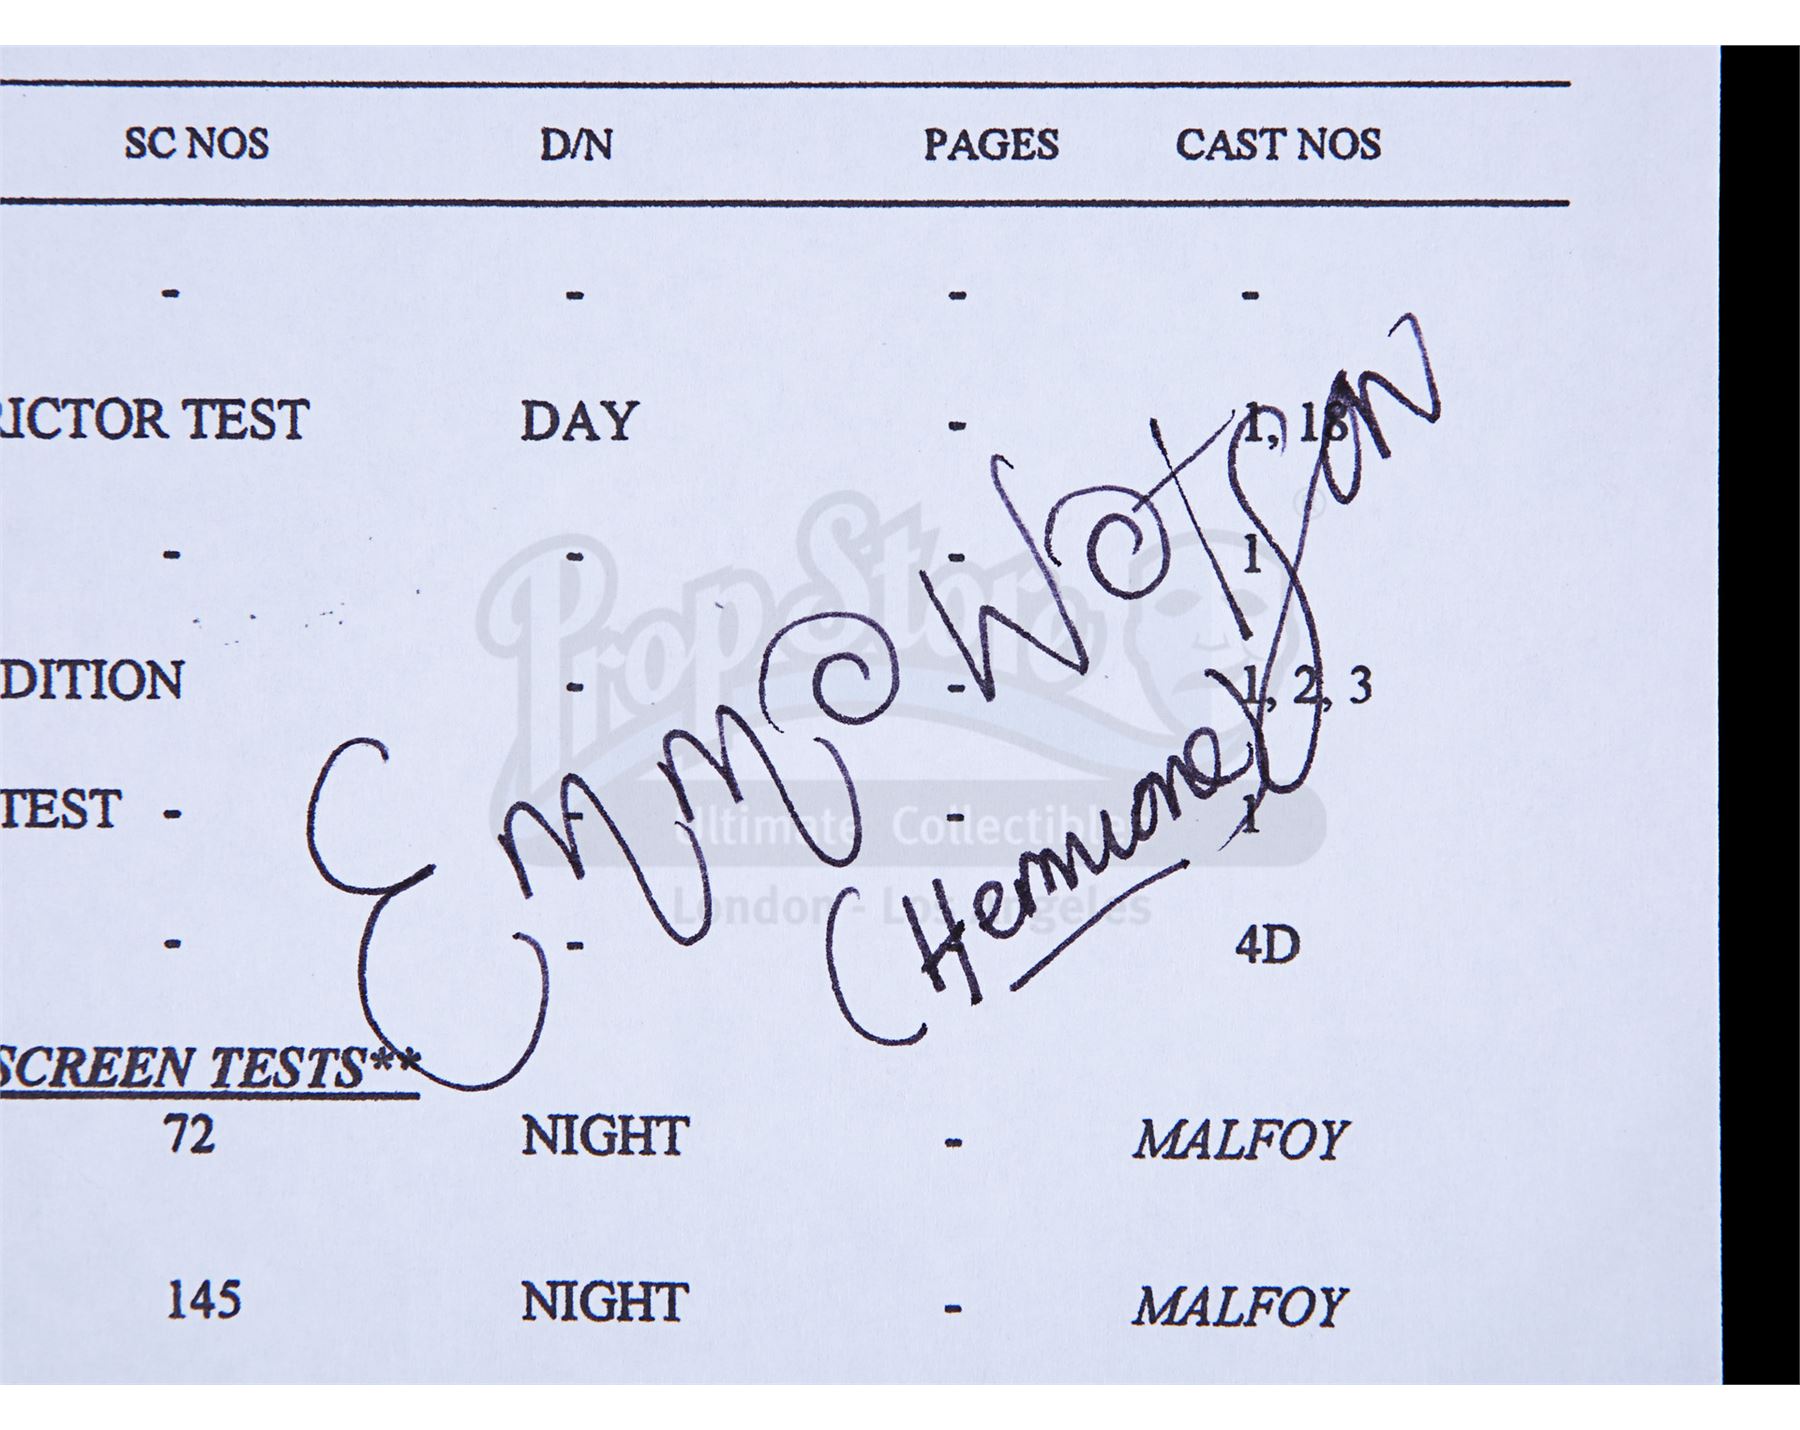 SC NOS D/N PAGES CAST NOS
- - - -
RICTOR TEST DAY - 1, 18
- - - 1
DITION - - 1, 2, 3
TEST - - - 1
- - 4D
Emma Watson
(Hermione)
SCREEN TESTS**
72 NIGHT - MALFOY
145 NIGHT - MALFOY
PropStore
Ultimate Collectibles
London - Los Angeles